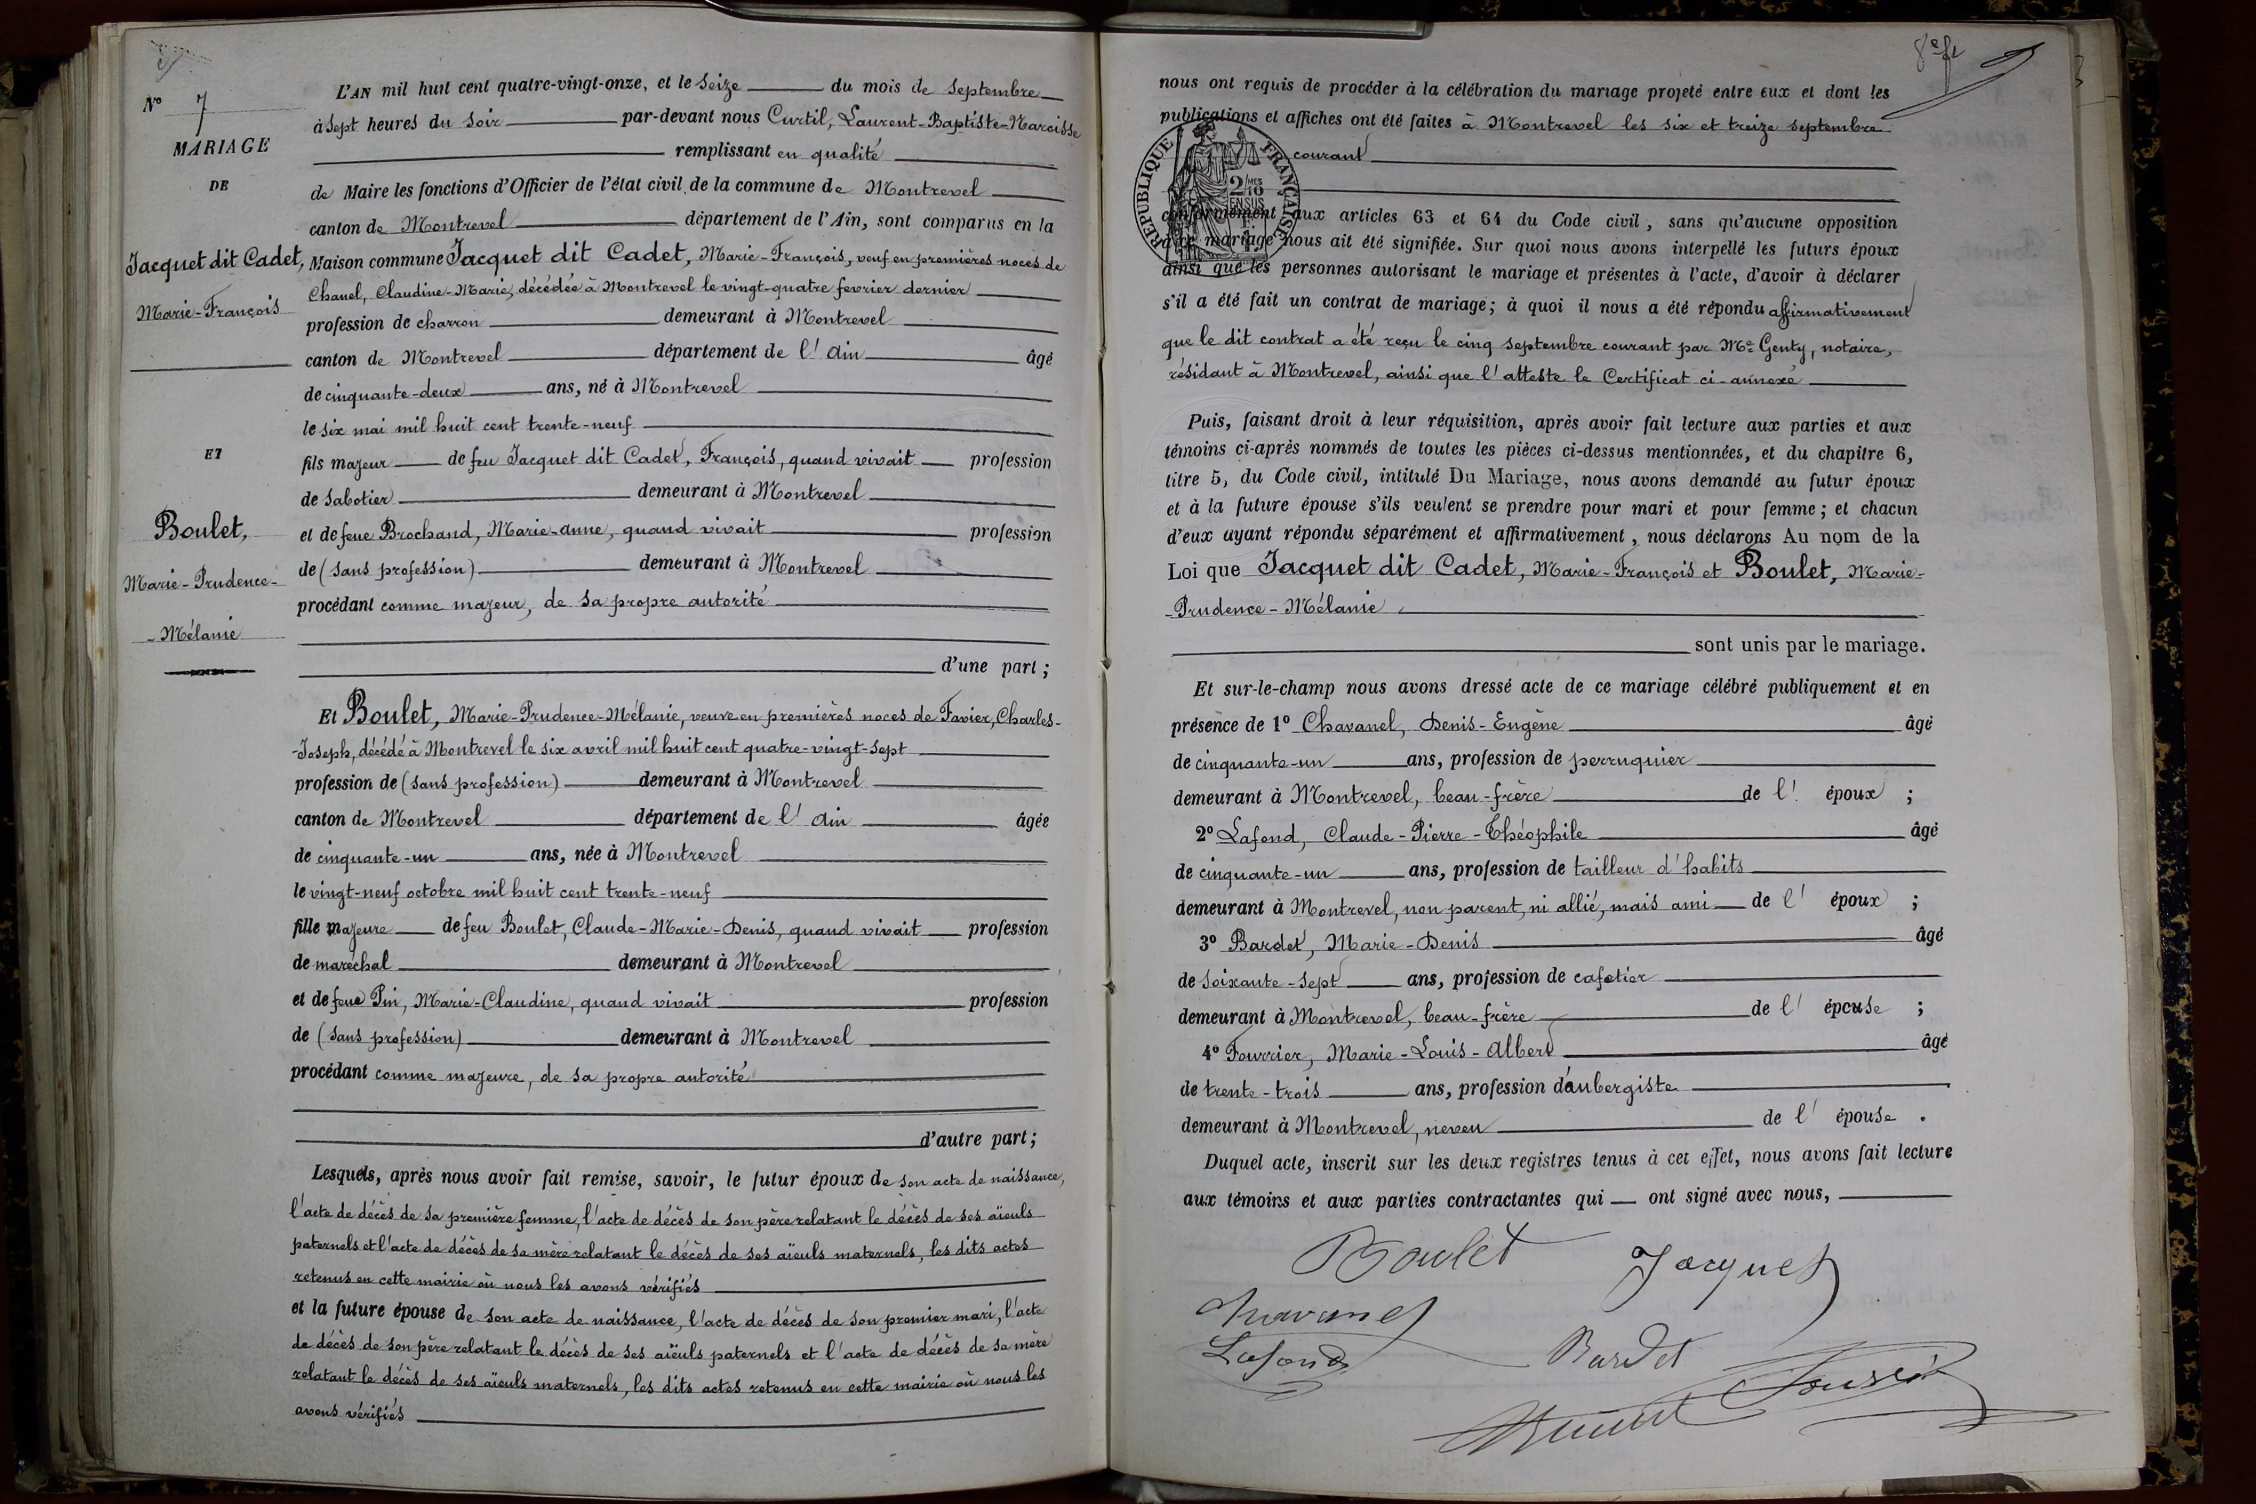 N° 7
MARIAGE
DE
Jacquet dit Cadet,
Marie-François
ET
Boulet,
Marie-Prudence-
-Mélanie
L'AN mil huit cent quatre-vingt-onze, et le seize du mois de septembre
à sept heures du soir par-devant nous Curtil, Laurent-Baptiste-Narcisse
remplissant en qualité
de Maire les fonctions d'Officier de l'état civil de la commune de Montrevel
canton de Montrevel département de l'Ain, sont comparus en la
Maison commune Jacquet dit Cadet, Marie-François, veuf en premières noces de
Chanel, Claudine-Marie, décédée à Montrevel le vingt-quatre fevrier dernier
profession de charron demeurant à Montrevel
canton de Montrevel département de l'Ain âgé
de cinquante-deux ans, né à Montrevel
le six mai mil huit cent trente-neuf
fils majeur de feu Jacquet dit Cadet, François, quand vivait profession
de sabotier demeurant à Montrevel
et de feue Brochand, Marie-Anne, quand vivait profession
de (sans profession) demeurant à Montrevel
procédant comme majeur, de sa propre autorité
d'une part ;
Et Boulet, Marie-Prudence-Mélanie, veuve en premières noces de Favier, Charles-
-Joseph, décédé à Montrevel le six avril mil huit cent quatre-vingt-sept
profession de (sans profession) demeurant à Montrevel
canton de Montrevel département de l'Ain âgée
de cinquante-un ans, née à Montrevel
le vingt-neuf octobre mil huit cent trente-neuf
fille majeure de feu Boulet, Claude-Marie-Denis, quand vivait profession
de maréchal demeurant à Montrevel
et de feue Pin, Marie-Claudine, quand vivait profession
de (sans profession) demeurant à Montrevel
procédant comme majeure, de sa propre autorité
d'autre part ;
Lesquels, après nous avoir fait remise, savoir, le futur époux de son acte de naissance,
l'acte de décès de sa première femme, l'acte de décès de son père relatant le décès de ses aïeuls
paternels et l'acte de décès de sa mère relatant le décès de ses aïeuls maternels, les dits actes
retenus en cette mairie où nous les avons vérifiés
et la future épouse de son acte de naissance, l'acte de décès de son premier mari, l'acte
de décès de son père relatant le décès de ses aïeuls paternels et l'acte de décès de sa mère
relatant le décès de ses aïeuls maternels, les dits actes retenus en cette mairie où nous les
avons vérifiés
8e ft
nous ont requis de procéder à la célébration du mariage projeté entre eux et dont les
publications et affiches ont été faites à Montrevel les six et treize septembre
courant
RÉPUBLIQUE FRANÇAISE
2/10 MES
EN SUS
conformément aux articles 63 et 64 du Code civil, sans qu'aucune opposition
à ce mariage nous ait été signifiée. Sur quoi nous avons interpellé les futurs époux
ainsi que les personnes autorisant le mariage et présentes à l'acte, d'avoir à déclarer
s'il a été fait un contrat de mariage ; à quoi il nous a été répondu affirmativement
que le dit contrat a été reçu le cinq septembre courant par Me Genty, notaire,
résidant à Montrevel, ainsi que l'atteste le Certificat ci-annexé
Puis, faisant droit à leur réquisition, après avoir fait lecture aux parties et aux
témoins ci-après nommés de toutes les pièces ci-dessus mentionnées, et du chapitre 6,
titre 5, du Code civil, intitulé Du Mariage, nous avons demandé au futur époux
et à la future épouse s'ils veulent se prendre pour mari et pour femme ; et chacun
d'eux ayant répondu séparément et affirmativement, nous déclarons Au nom de la
Loi que Jacquet dit Cadet, Marie-François et Boulet, Marie-
-Prudence-Mélanie
sont unis par le mariage.
Et sur-le-champ nous avons dressé acte de ce mariage célébré publiquement et en
présence de 1° Chavanel, Denis-Eugène âgé
de cinquante-un ans, profession de perruquier
demeurant à Montrevel, beau-frère de l'époux ;
2° Lafond, Claude-Pierre-Théophile âgé
de cinquante-un ans, profession de tailleur d'habits
demeurant à Montrevel, non parent, ni allié, mais ami de l'époux ;
3° Bardet, Marie-Denis âgé
de soixante-sept ans, profession de cafetier
demeurant à Montrevel, beau-frère de l'épouse ;
4° Fourrier, Marie-Louis-Albert âgé
de trente-trois ans, profession d'aubergiste
demeurant à Montrevel, neveu de l'épouse .
Duquel acte, inscrit sur les deux registres tenus à cet effet, nous avons fait lecture
aux témoins et aux parties contractantes qui ont signé avec nous,
Boulet Jacquet
Chavanel
Lafond Bardet